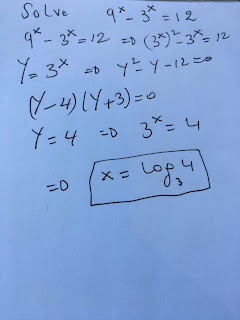 Solve 9^x - 3^x = 12
9^x - 3^x = 12 => (3^x)^2 - 3^x = 12
Y = 3^x => Y^2 - Y - 12 = 0
(Y - 4)(Y + 3) = 0
Y = 4 => 3^x = 4
=> x = log_3 4